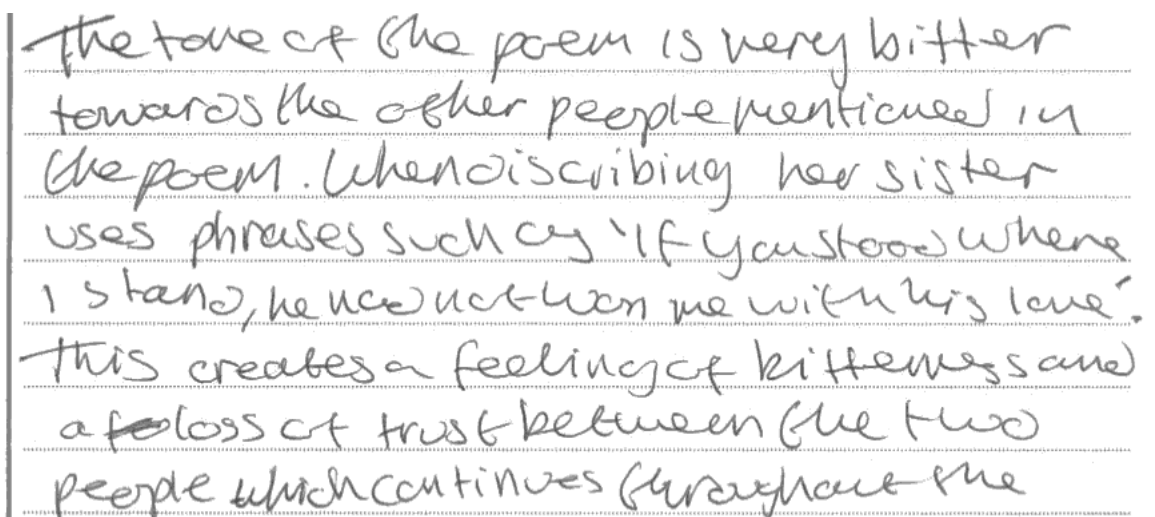 The tone of the poem is very bitter
towards the other people mentioned in
the poem. When discribing her sister
uses phrases such as 'If you stood where
I stand, he ned not won me with his love'.
This creates a feeling of bitterness and
a loss of trust between the two
people which continues throughout the